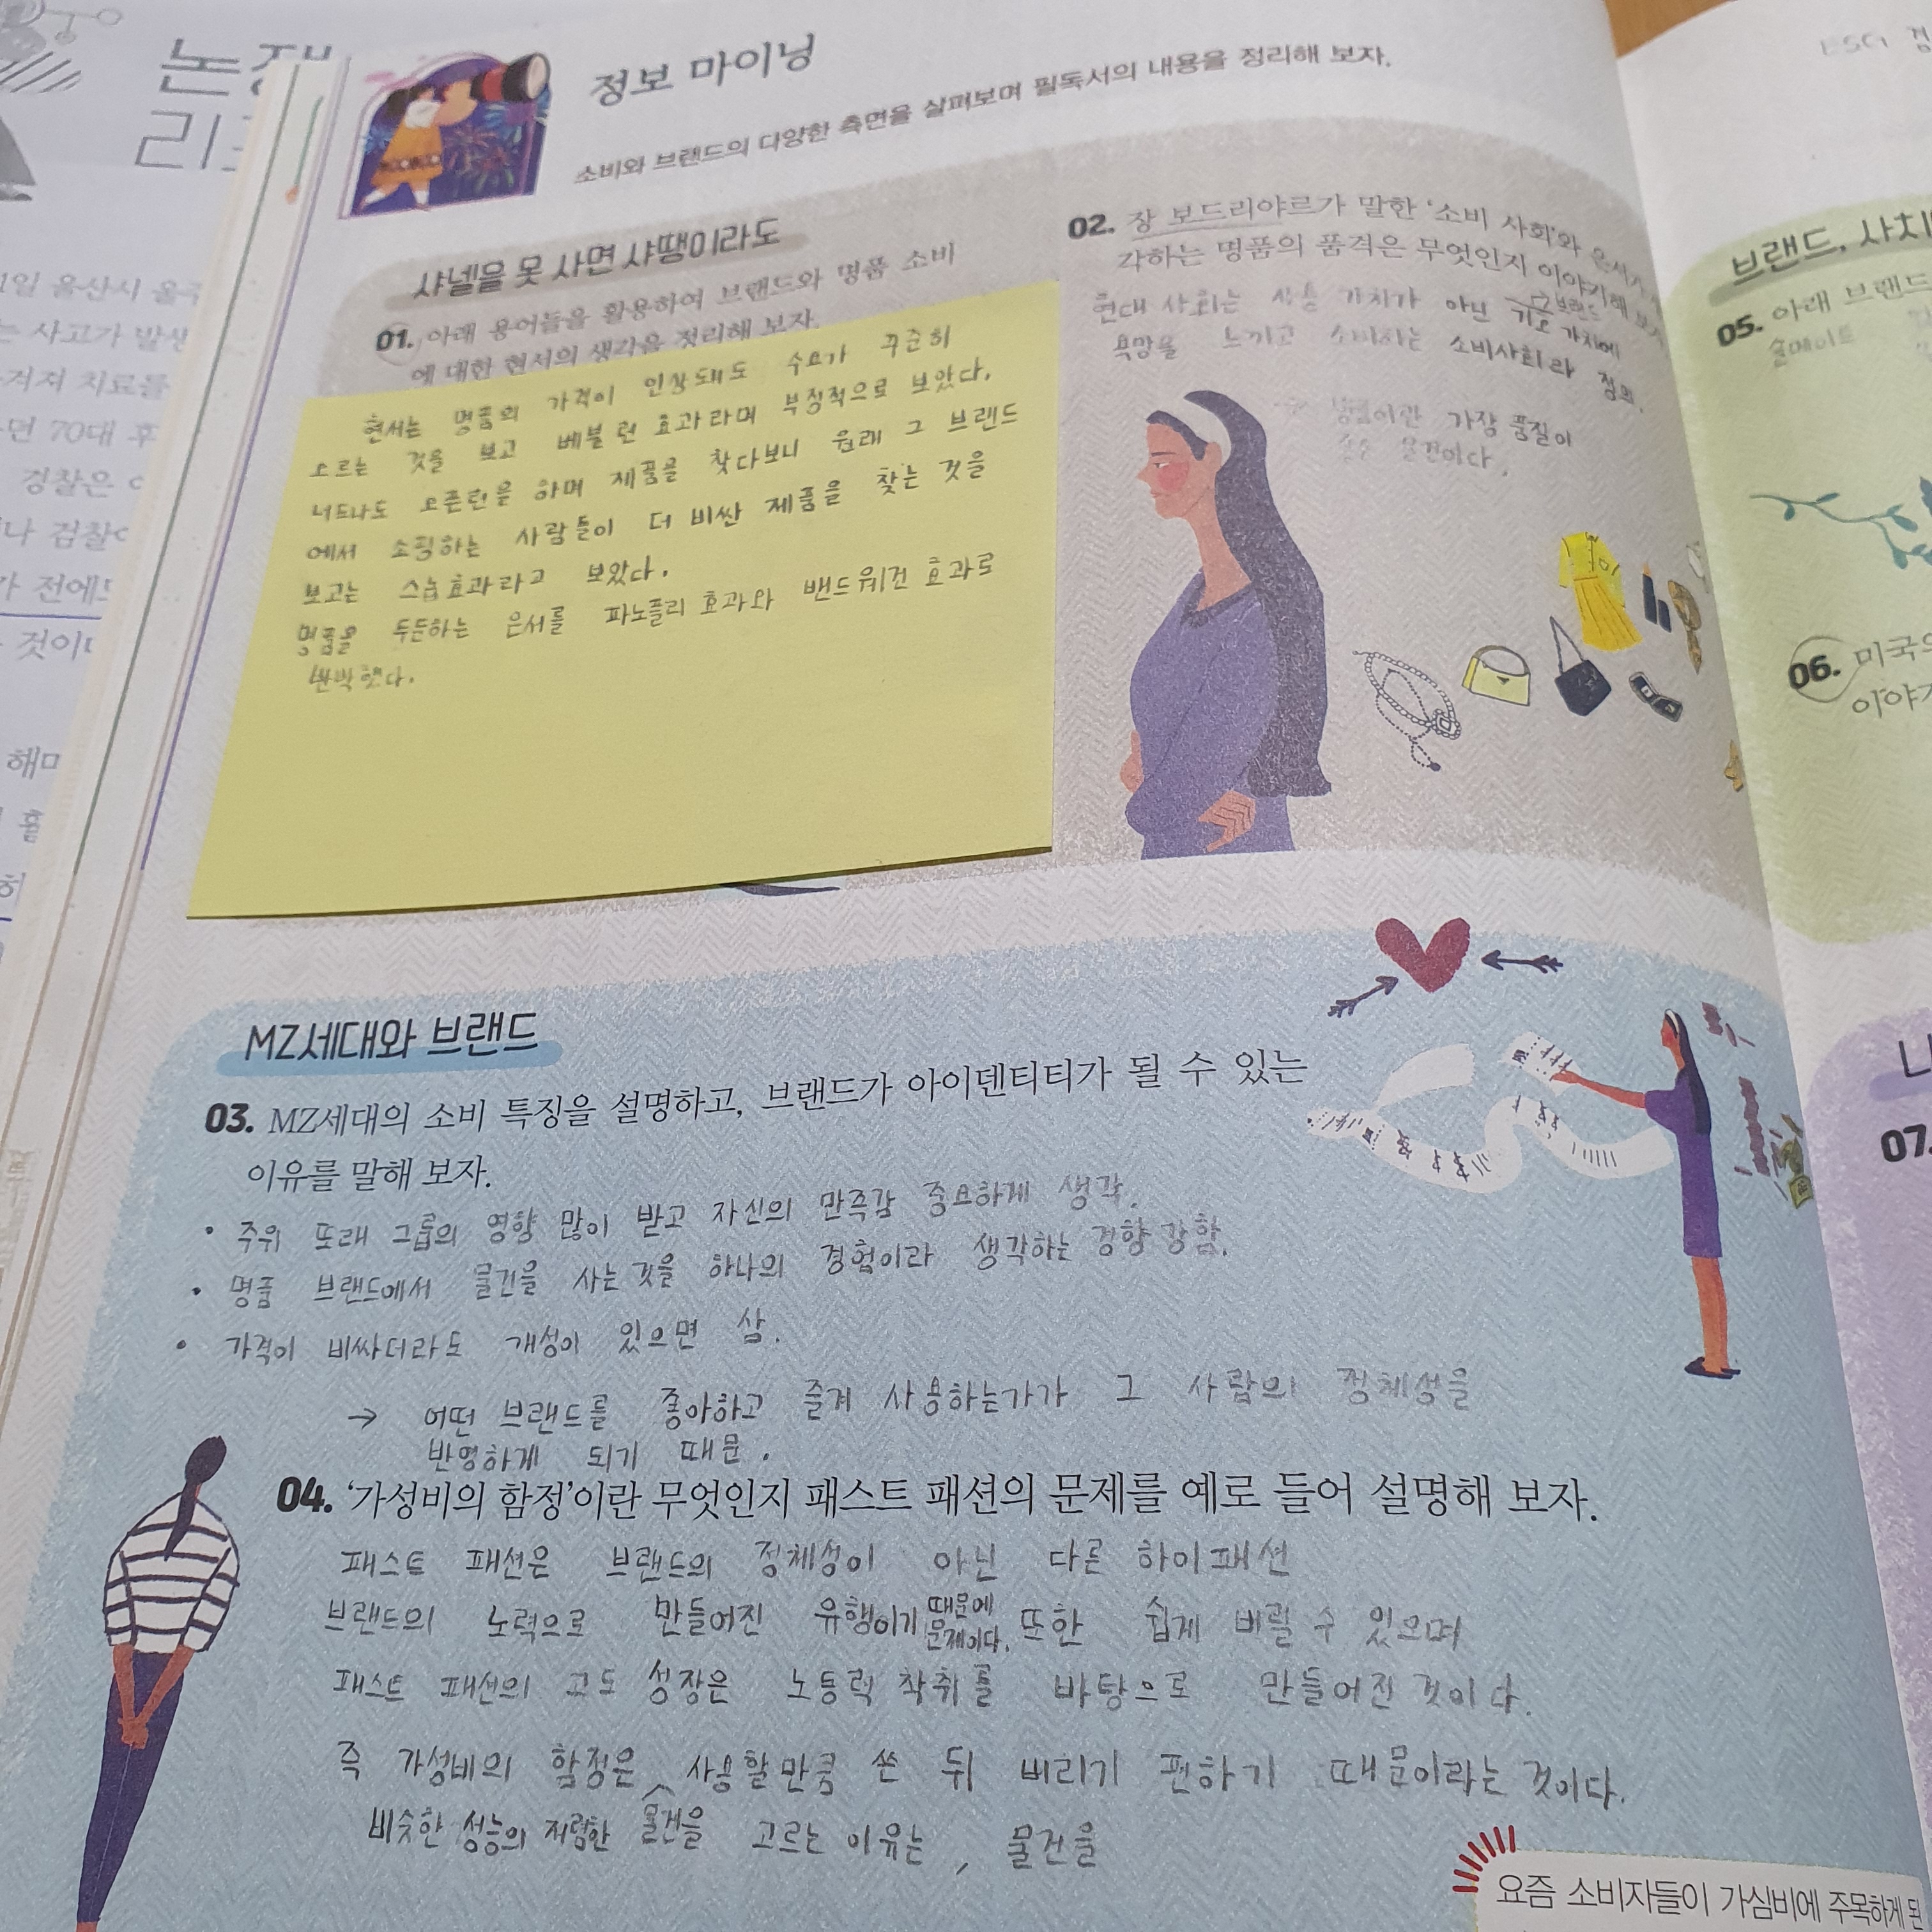 논쟁
리
1일 울산시 울주
는 사고가 발생
겨져 치료를
던 70대 후
경찰은
나 검찰
가 전에도
것이다
해마
정보 마이닝
소비와 브랜드의 다양한 측면을 살펴보며 필독서의 내용을 정리해 보자.
샤넬을 못 사면 샤땡이라도
01. 아래 용어들을 활용하여 브랜드와 명품 소비
에 대한 현서의 생각을 정리해 보자.
현서는 명품의 가격이 인상돼도 수요가 꾸준히
오르는 것을 보고 베블런 효과라며 부정적으로 보았다.
너도나도 오픈런을 하며 제품을 찾다보니 원래 그 브랜드
에서 쇼핑하는 사람들이 더 비싼 제품을 찾는 것을
보고는 스놉효과라고 보았다.
명품을 두둔하는 은서를 파노플리 효과와 밴드웨건 효과로
반박했다.
02. 장 보드리야르가 말한 '소비 사회'와 은서가 생
각하는 명품의 품격은 무엇인지 이야기해 보자.
현대 사회는 상품 가치가 아닌 기호 가치에
브랜드
욕망을 느끼고 소비하는 소비사회라 정의.
명품이란 가장 품질이
좋은 물건이다.
MZ세대와 브랜드
03. MZ세대의 소비 특징을 설명하고, 브랜드가 아이덴티티가 될 수 있는
이유를 말해 보자.
• 주위 또래 그룹의 영향 많이 받고 자신의 만족감 중요하게 생각.
• 명품 브랜드에서 물건을 사는 것을 하나의 경험이라 생각하는 경향 강함.
• 가격이 비싸더라도 개성이 있으면 삼.
→ 어떤 브랜드를 좋아하고 즐겨 사용하는가가 그 사람의 정체성을
반영하게 되기 때문.
04. '가성비의 함정'이란 무엇인지 패스트 패션의 문제를 예로 들어 설명해 보자.
패스트 패션은 브랜드의 정체성이 아닌 다른 하이패션
브랜드의 노력으로 만들어진 유행이기 때문에 문제이다. 또한 쉽게 버릴 수 있으며
패스트 패션의 고도 성장은 노동력 착취를 바탕으로 만들어진 것이다.
즉 가성비의 함정은 사용할만큼 쓴 뒤 버리기 편하기 때문이라는 것이다.
비슷한 성능의 저렴한 물건을 고르는 이유는, 물건을
요즘 소비자들이 가심비에 주목하게 된
브랜드, 사치
05. 아래 브랜드
솔메이트
06. 미국의
이야기
나
07.